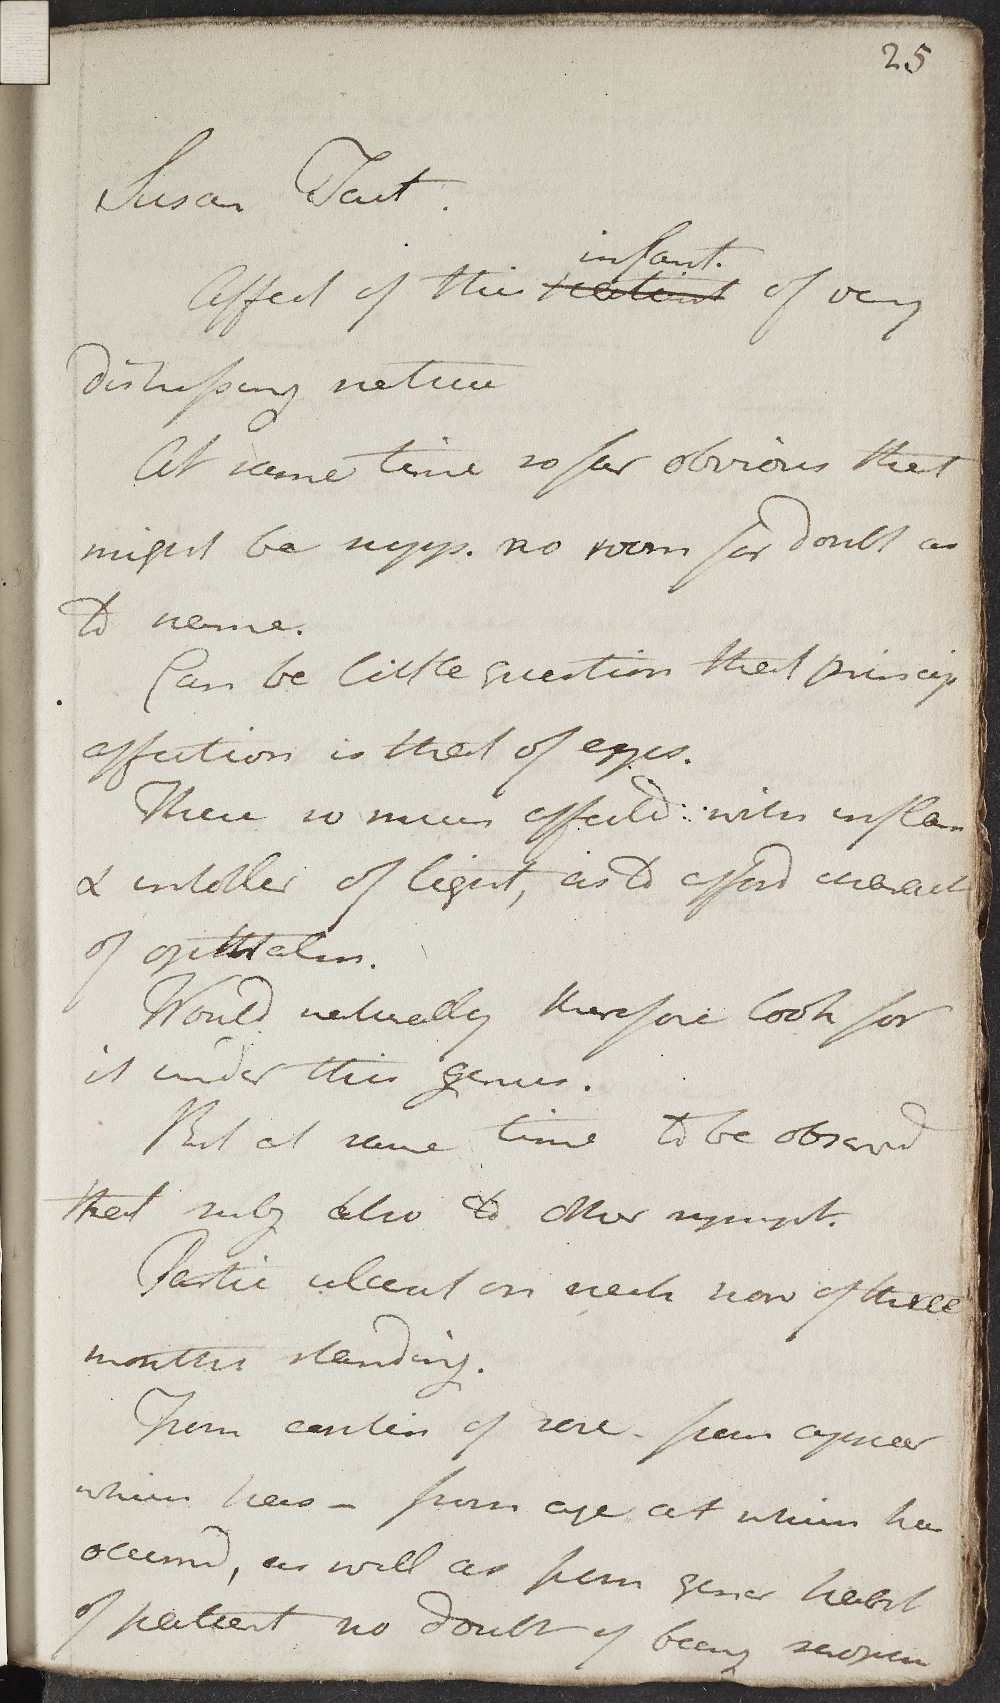 25
Susan Tait.
infant.
Affect of this patient of very
distressing nature
At same time so far obvious that
might be supps. no room for doubt as
to name.
Can be little question that princip
affection is that of eyes.
These so much affected with inflam
& intoller of light, as to afford charact
of opthalm.
Would naturally therefore look for
it under this genus.
But at same time to be observd
that subj also to other sympt.
Partic ulcerat on neck now of three
months standing.
From contin of sore - from appear
which has - from age at which has
occurrd, as well as from gener habit
of patient no doubt of being scrophu